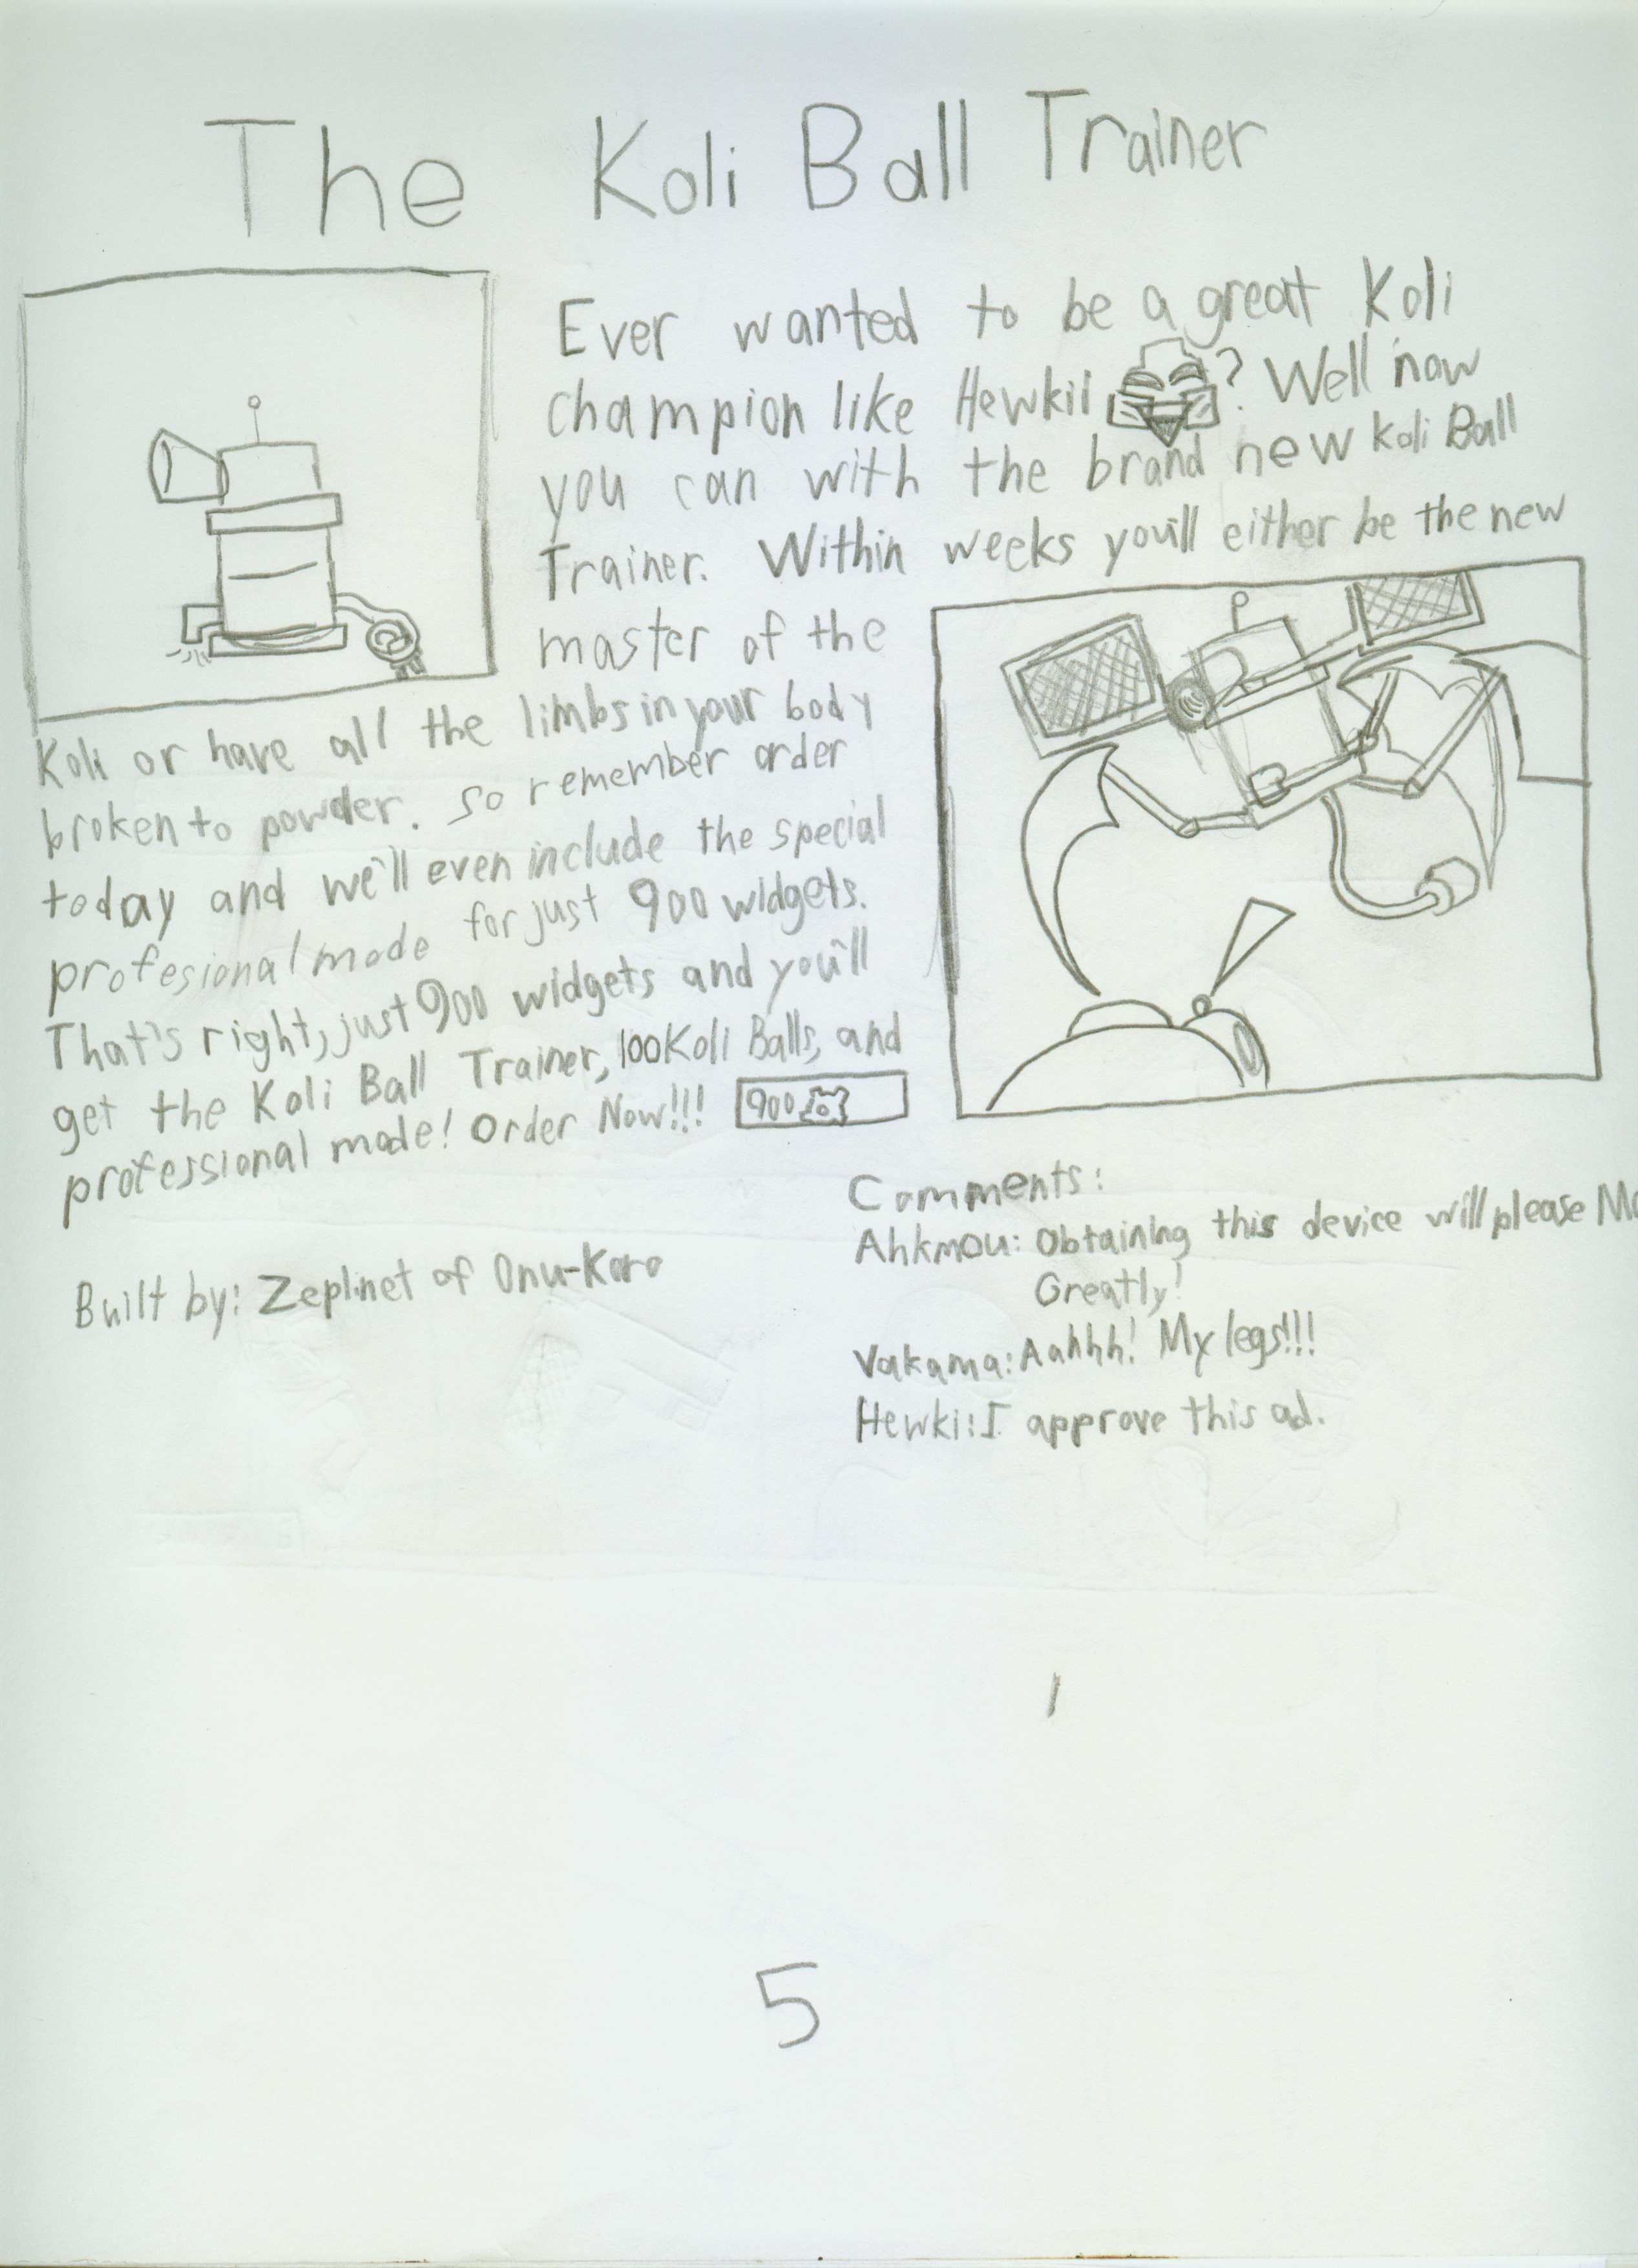 The Koli Ball Trainer
Ever wanted to be a great Koli
champion like Hewkii ? Well now
you can with the brand new Koli Ball
Trainer. Within weeks you'll either be the new
master of the
Koli or have all the limbs in your body
broken to powder. so remember order
today and we'll even include the special
profesional mode for just 900 widgets.
That's right, just 900 widgets and you'll
get the Koli Ball Trainer, 100 Koli Balls, and
professional mode! Order Now!!! 900
Built by: Zeplinet of Onu-Koro
Comments:
Ahkmou: Obtaining this device will please
Greatly!
Vakama: Aahhh! My legs!!!
Hewki: I approve this ad.
5